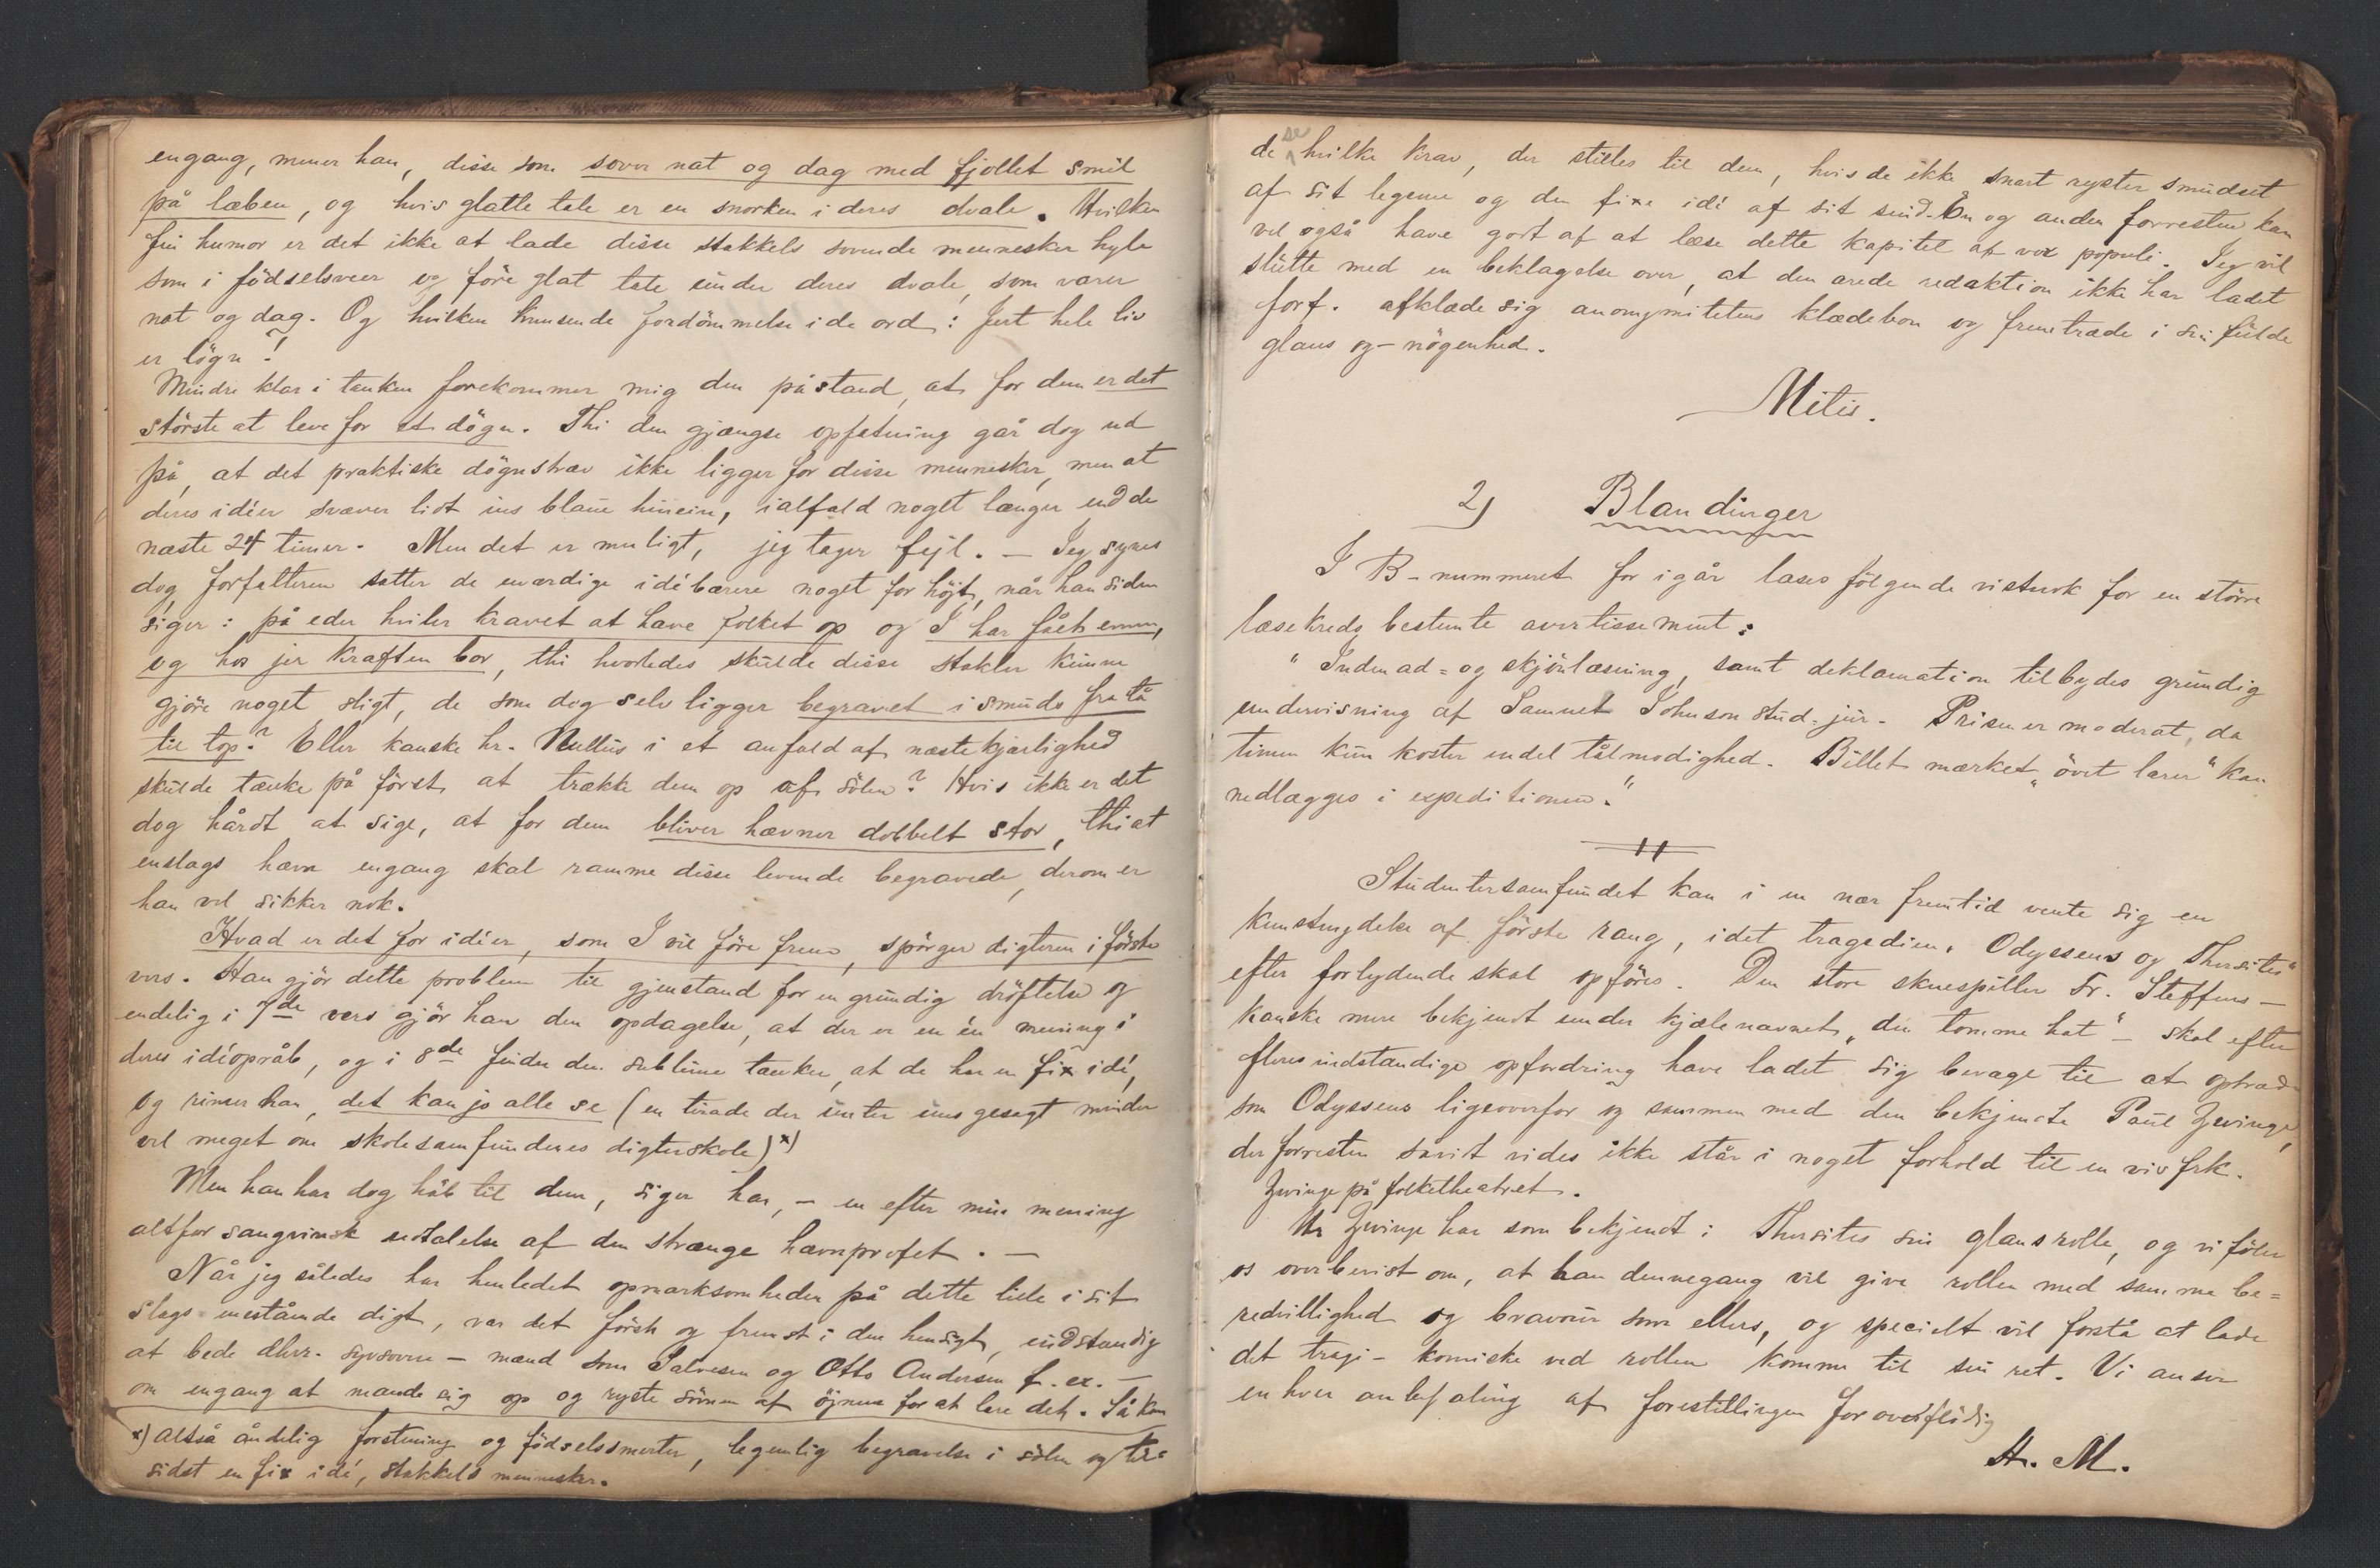 engang, mener han, disse som sover nat og dag med fjollet smil
på læben, og hvis glatte tale er en snorken i deres dvale. Hvilken
fin humor er det ikke at lade disse stakkels sovende mennesker hyle
som i födselsveer og före glat tale under deres dvale, som varer
nat og dag. Og hvilken knusende fordömmelse i de ord: Jert hele liv
er lögn!
Mindre klar i tanken forekommer mig den påstand, at for dem er det
störste at leve for et dögn. Thi den gjængse opfatning går dog ud
på, at det praktiske dögnstræv ikke ligger for disse mennesker, men at
deres idéer svæver lidt ins blaue hinein, ialfald noget længer end de
næste 24 timer. Men det er muligt, jeg tager fejl. — Jeg synes
dog forfatteren sætter de uværdige idébærere noget for höjt, når han siden
siger: på eder hviler kravet at hæve folket op og I har fået evnen,
og hos jer kraften bor, thi hvorledes skulde disse stakler kunne
gjöre noget sligt, de som dog selv ligger begravet i smuds fra tå
til top? Eller kanske hr. Nullus i et anfald af næstekjærlighed
skulde tænke på först at trække dem op af sölen? Hvis ikke er det
dog hårdt at sige, at for dem bliver hævnen dobbelt stor, thi at
enslags hævn engang skal ramme disse levende begravede, derom er
han vel sikker nok.
Hvad er det for idéer, som I vil före frem, spörger digteren i förste
vers. Han gjör dette problem til gjenstand for en grundig dröftelse og
endelig i 7de vers gjör han den opdagelse, at der er en én mening i
deres idéopråb, og i 8de finder den sublime tanke, at de har en fix idé,
og rimer han, det kan jo alle se (en tirade der unter uns gesagt minder
vel meget om skolesamfundenes digterskole)x)
Men han har dog håb til dem, siger han, — en efter min mening
altfor sangvinsk udtalelse af den strænge hævnprofet. —
Når jeg således har henledet opmærksomheden på dette lille i sit
slags enestående digt, var det först og fremst i den hensigt, indstændig
at bede dhrr. syvsovere — mænd som Salvesen og Otto Andersen f. ex. —
om engang at mande sig op og ryste sövnen af öjnene for at læse det. Så kan
x) altså åndelig forstening og födselssmerter, legemlig begravelse i sölen og til
sidst en fix idé, stakkels mennesker.
de se hvilke krav, der stilles til dem, hvis de ikke snart ryster smudset
af sit legeme og den fixe idé af sit sind. Én og anden forresten kan
vel også have godt af at læse dette kapitel af vox populi. Jeg vil
slutte med en beklagelse over, at den ærede redaktion ikke har ladet
forf. afklæde sig anonymitetens klædebon og fremtræde i sin fulde
glans og — nögenhed.
Mitis.
2) Blandinger
I B-nummeret for igår læses fölgende vistnok for en större
læsekreds bestemte avertissement:
"Inden ad= og skjönlæsning, samt deklamation tilbydes grundig
undervisning af Samuel Johnson stud. jur. Prisen er moderat, da
timen kun koster endel tålmodighed. Billet mærket „övet lærer" kan
nedlægges i expeditionen."
Studentersamfundet kan i en nær fremtid vente sig en
kunstnydelse af förste rang, idet tragedien „Odysseus og Thersites"
efter forlydende skal opföres. Den store skuespiller Fr. Steffens —
kanske mere bekjendt under kjælenavnet „den tomme hat" — skal efter
fleres indstændige opfordring have ladet sig bevæge til at optræde
som Odysseus ligeoverfor og sammen med den bekjendte Paul Zwinge,
der forresten såvidt vides ikke står i noget forhold til en vis frk.
Zwinge på folketheatret.
Hr Zwinge har som bekjendt i Thersites sin glansrolle, og vi föler
os overbevist om, at han dennegang vil give rollen med samme be=
redvillighed og bravour som ellers, og specielt vil forstå at lade
det tragi-komiske ved rollen komme til sin ret. Vi anser
enhver anbefaling af forestillingen for overflödig
A. M.